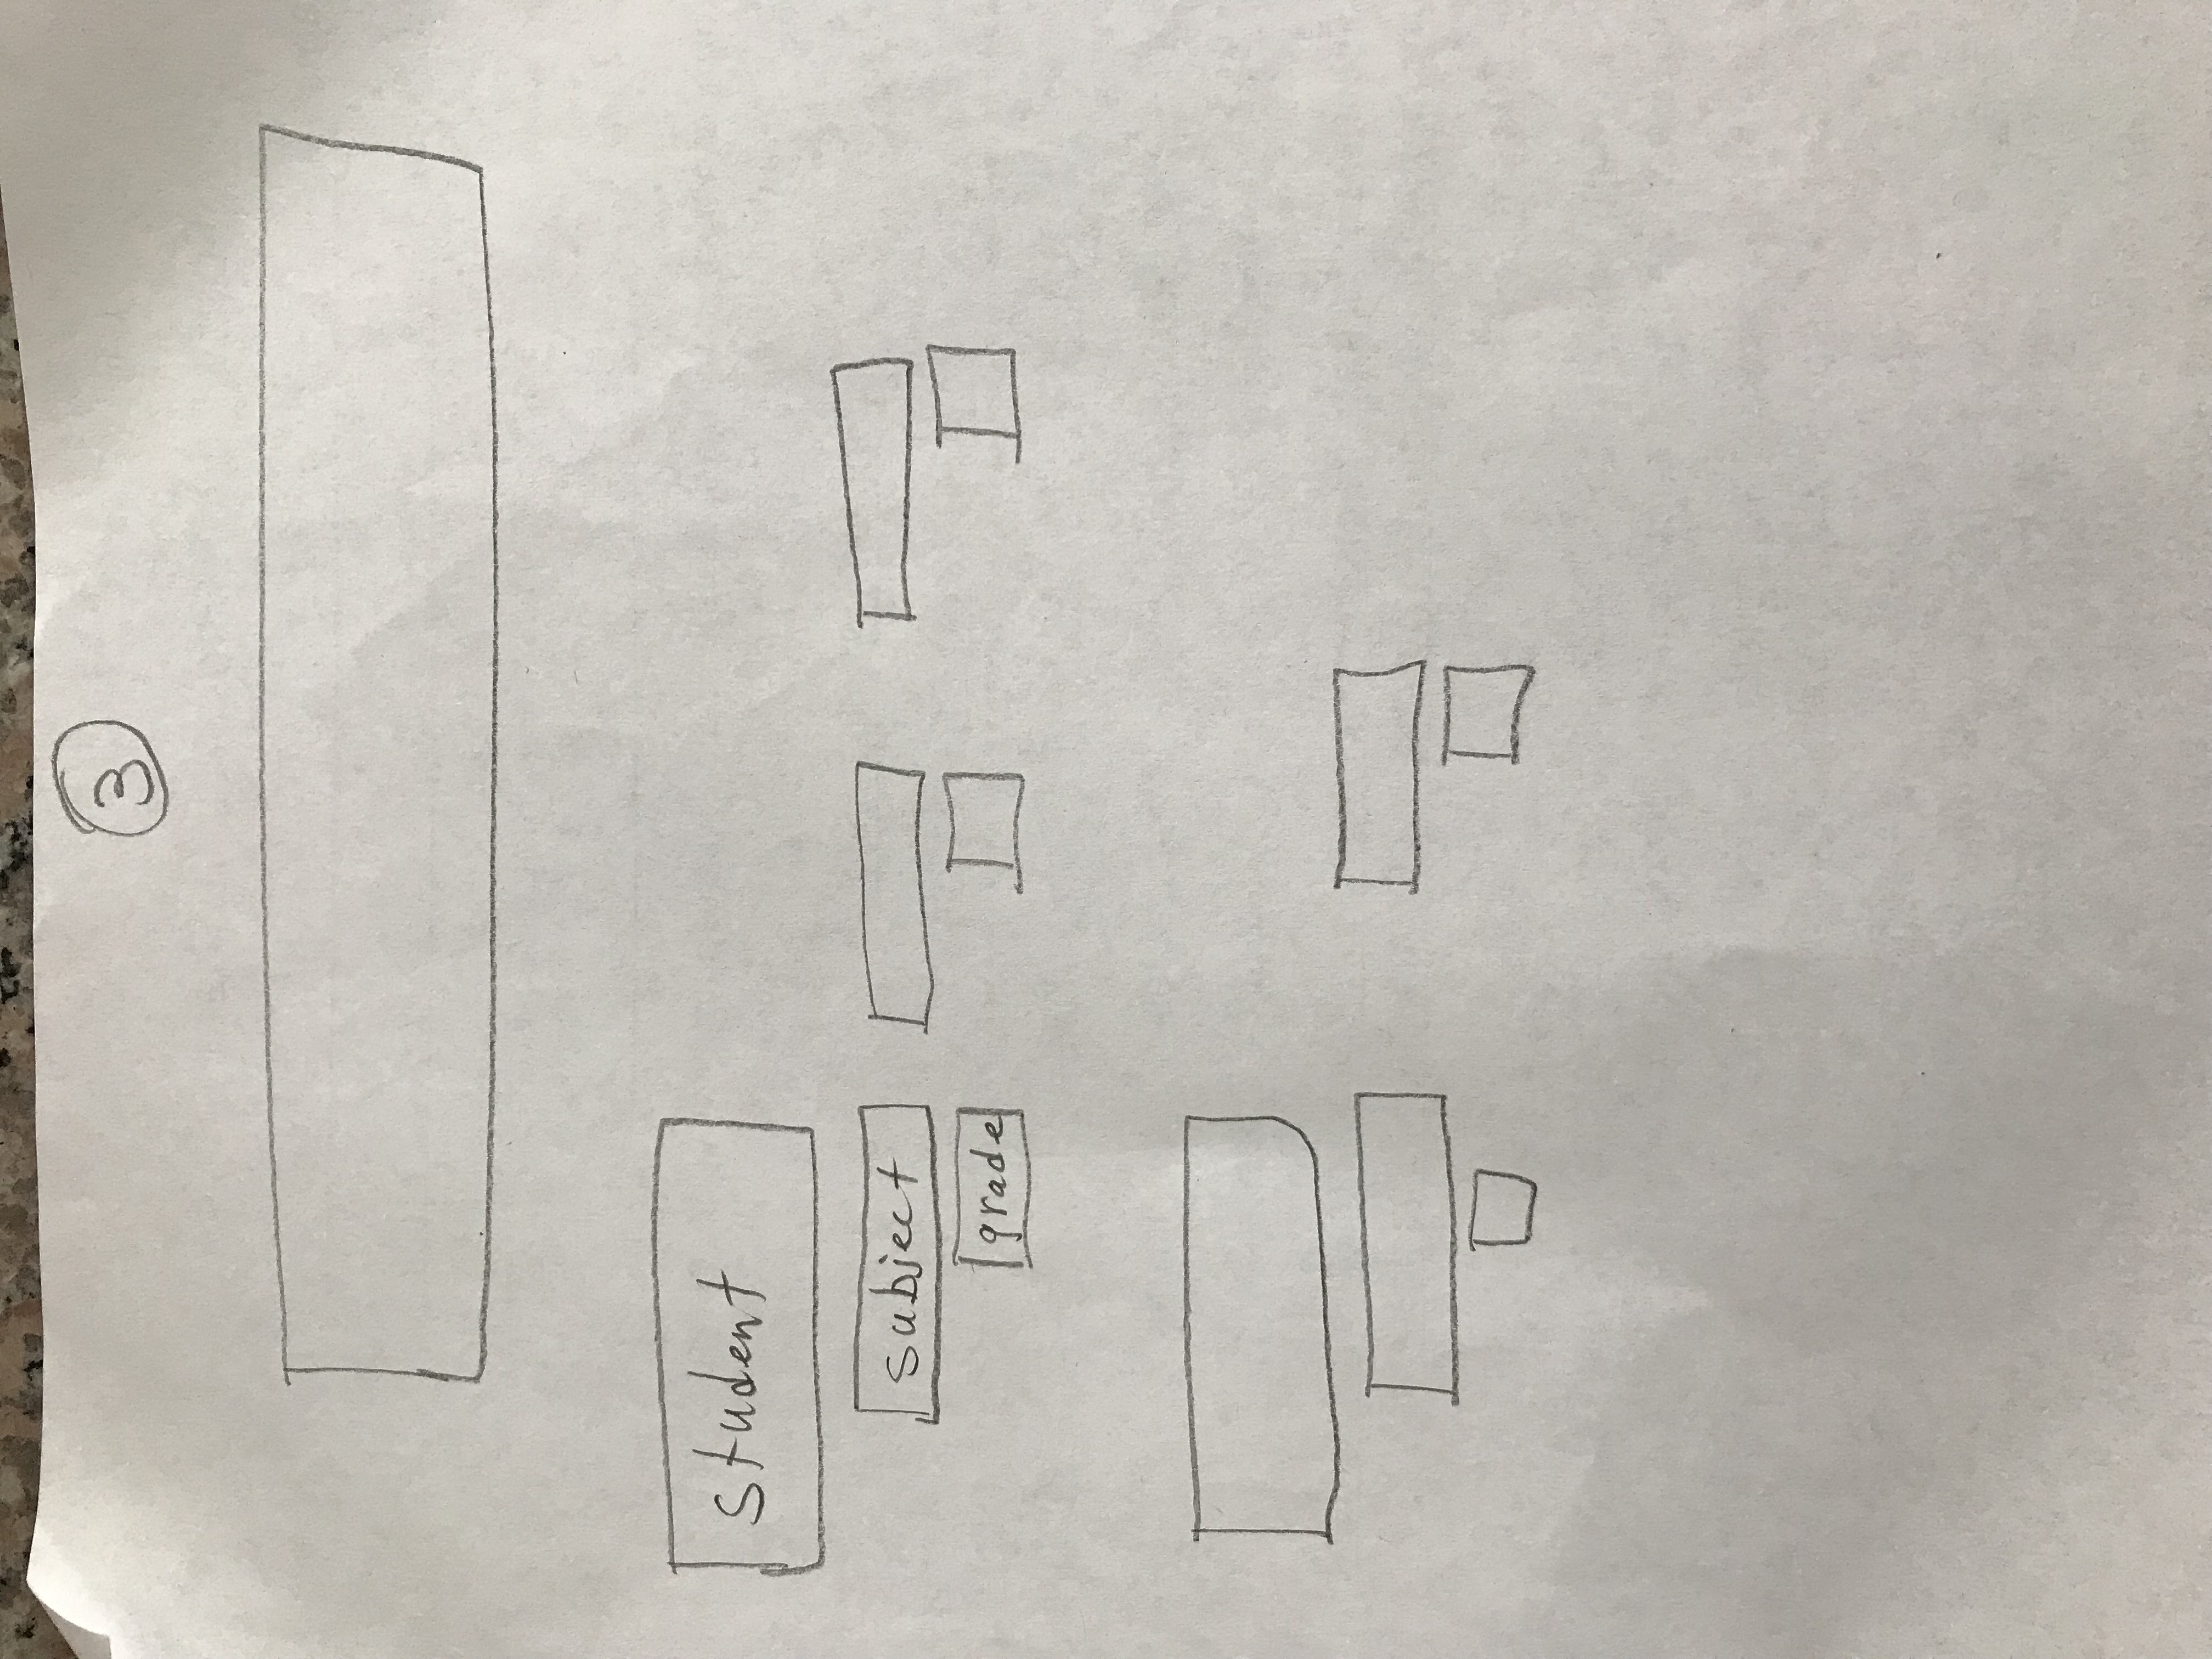 3
student
subject
grade